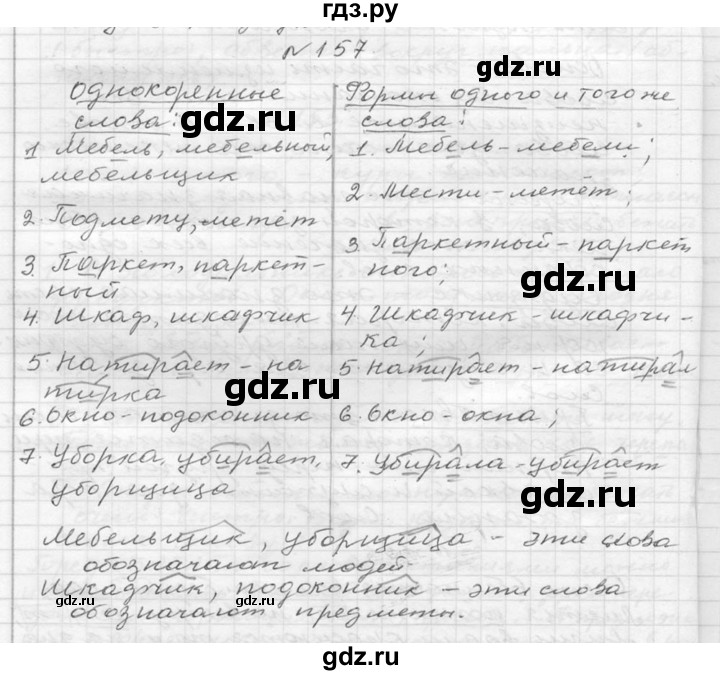 гдз.ру
№157
однокоренные
слова:
1 Мебель, мебельный,
мебельщик
2. Подмету, метёт
3. Паркет, паркет-
ный
4. Шкаф, шкафчик
5. Натирает - на
тирка
6. Окно - подоконник
7. Уборка, убирает,
уборщица
Формы одного и того же
слова:
1. Мебель - мебели;
2. Мести - метёт;
3. Паркетный - паркет
ного;
4. Шкафчик - шкафчи-
ка;
5. Натирает - натирал
6. Окно - окна;
7. Убирала - убирает
Мебельщик, уборщица - эти слова
обозначают людей.
Шкафчик, подоконник - эти слова
обозначают предметы.
gdz.ru
gdz.ru
gdz.ru
gdz.ru
gdz.ru
gdz.ru
gdz.ru
gdz.ru
gdz.ru
gdz.ru